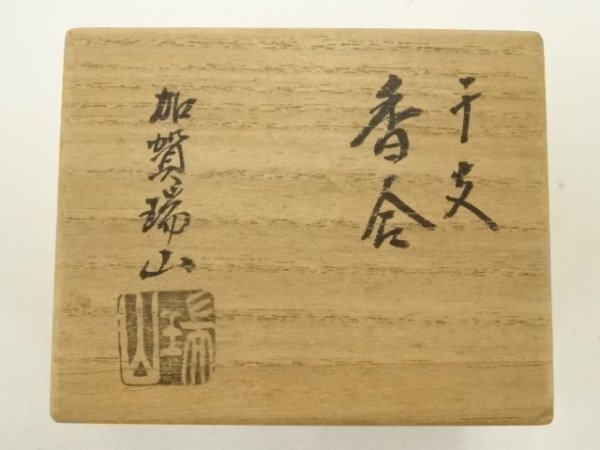 干支
香合
加賀瑞山
瑞山